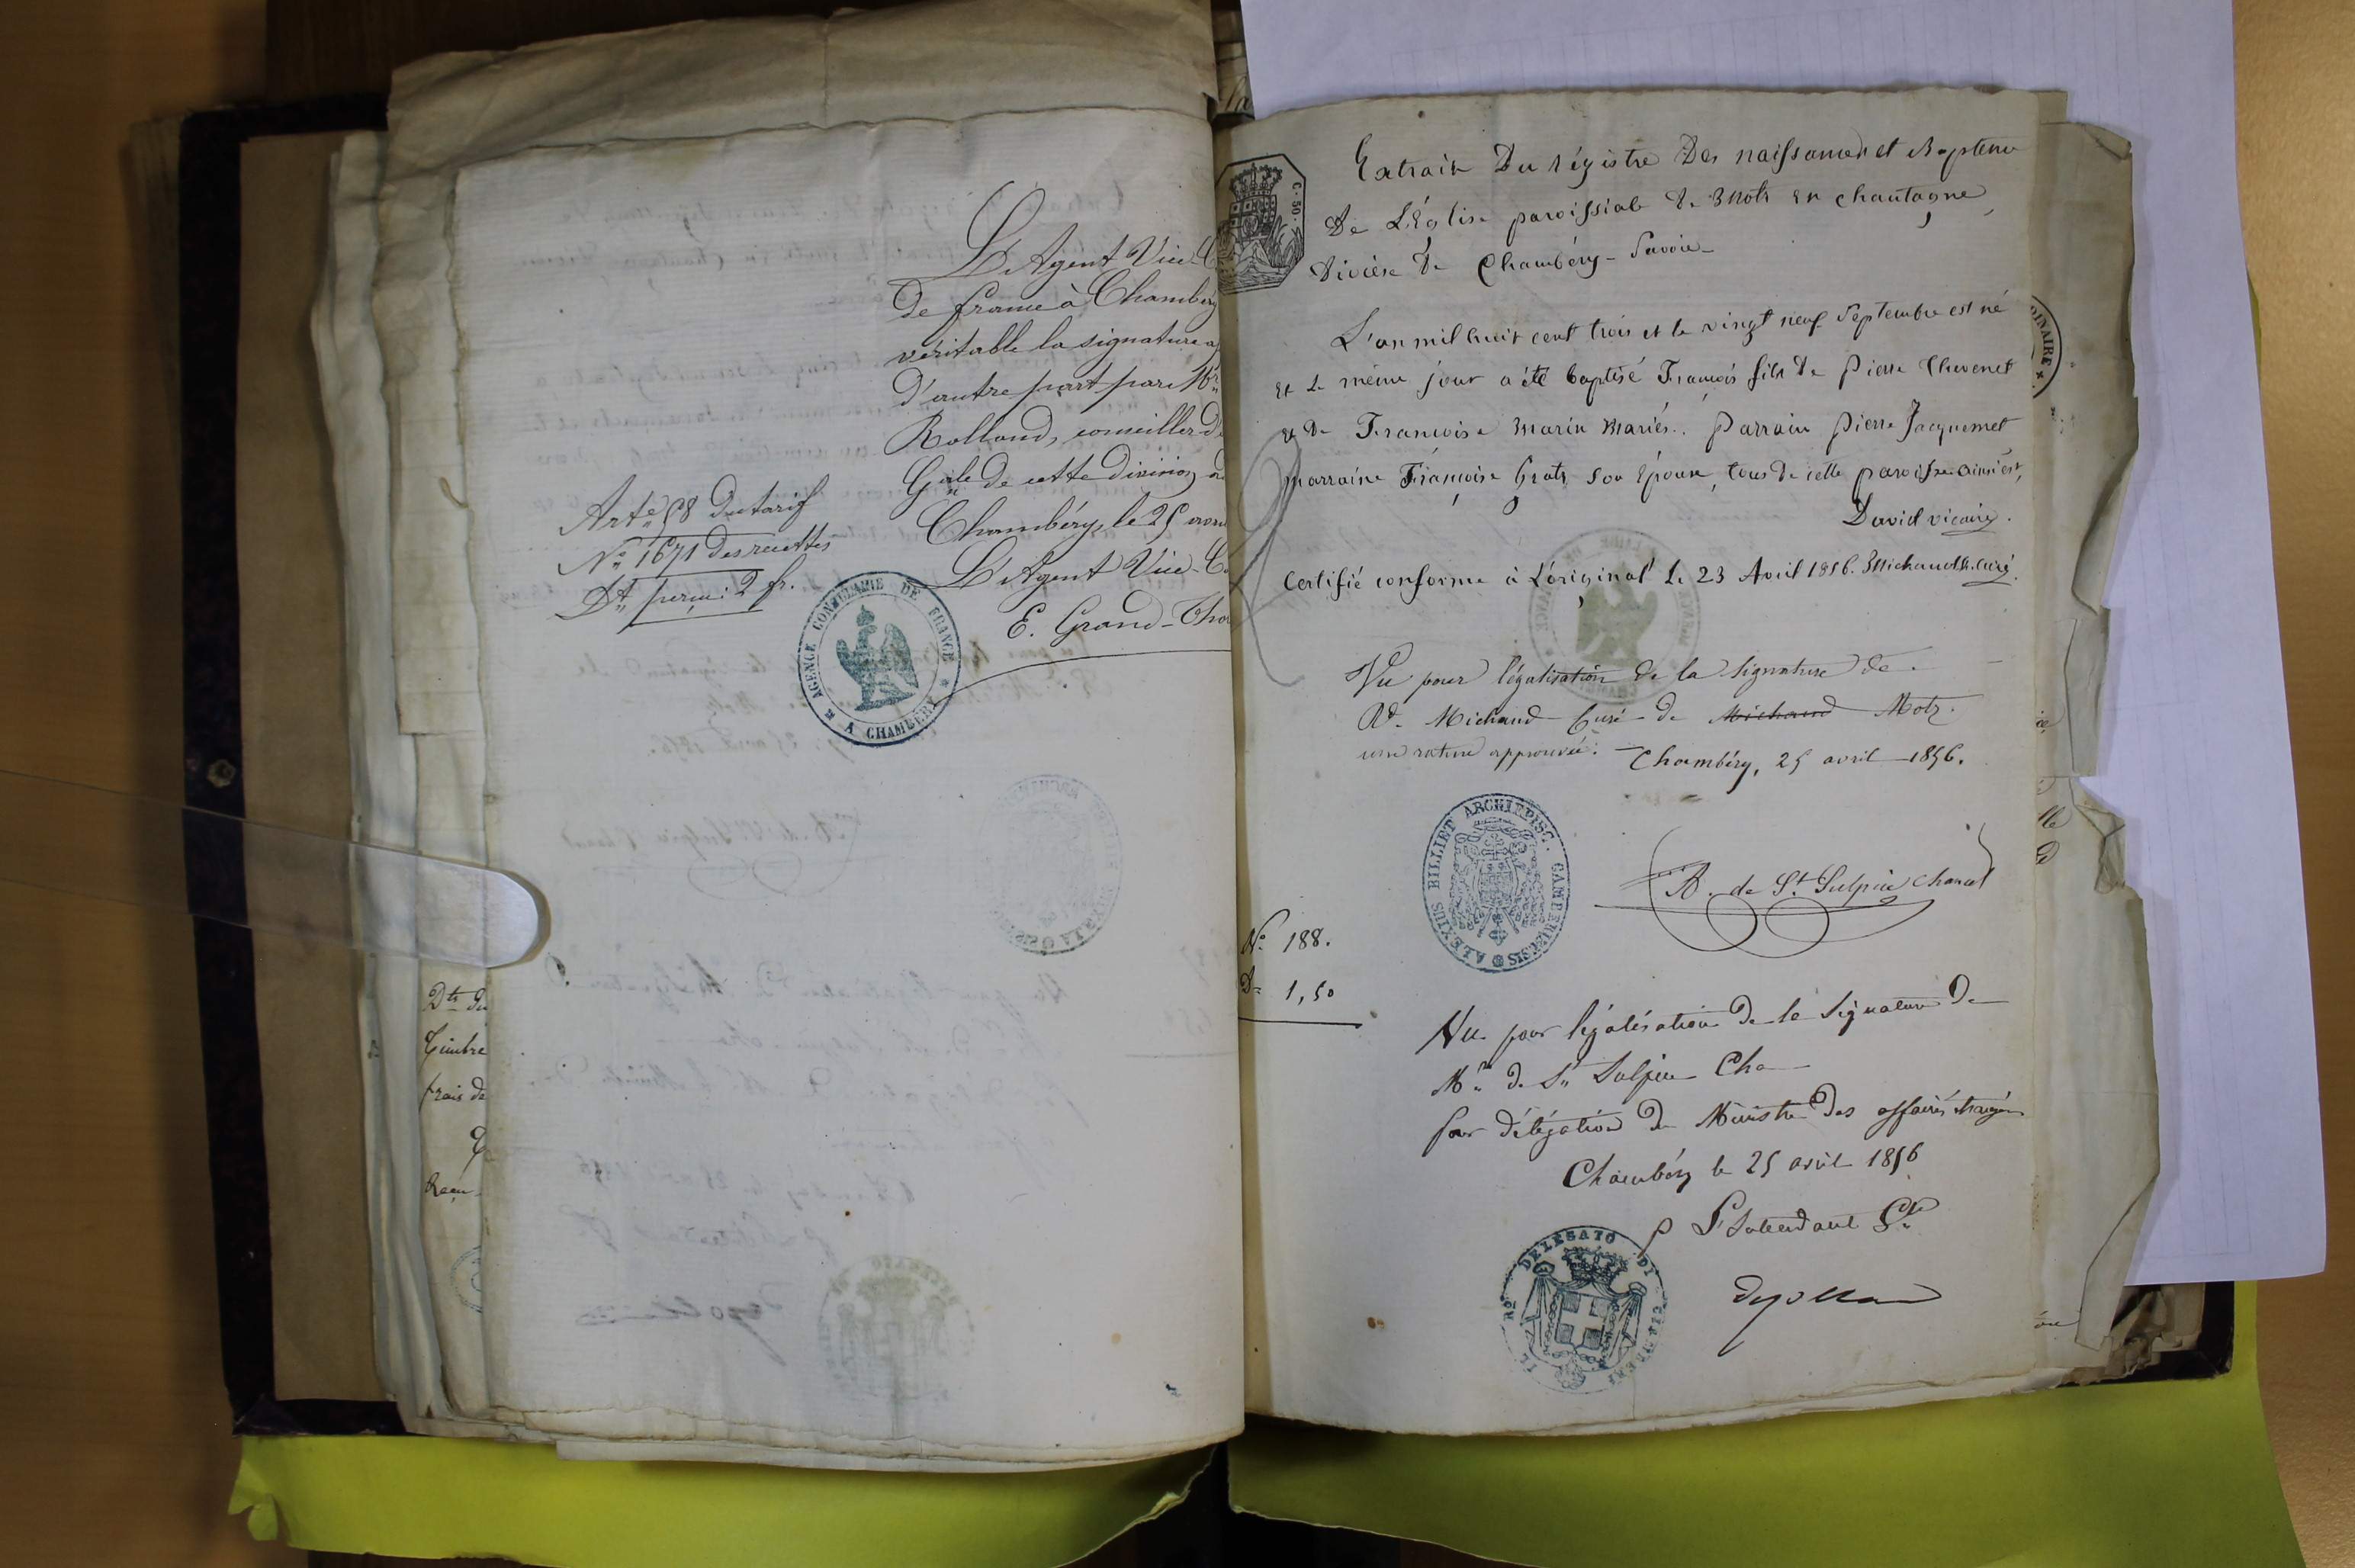 L'Agent Vice-C
de france à Chambéry
véritable la signature a
d'autre part par Mr
Rolland, conseiller d
Gale de cette division
Chambéry, le 25 avr
L'Agent Vice-C
E. Grand-Tho
Arte 58 du tarif
No 1671 des recettes
Dt perçu: 2 fr.
AGENCE CONSULAIRE DE FRANCE
A CHAMBERY
Dts du
Timbre
frais de
Reçu
C. 50.
Extrait Du régistre Des naissances et Baptême
De L'Eglise paroissiale de Motz en chautagne,
Diocèse de Chambéry - Savoie -
L'an mil huit cent trois et le vingt neuf Septembre est né
et le même jour a été baptisé François fils de Pierre Chevenet
et de Françoise Marin Mariés. Parrain Pierre Jacquemet
Marraine Françoise Gratz son Epouse, tous de cette paroisse ainsi est,
David vicaire.
Certifié conforme à L'original Le 23 Avril 1856. Michaud R. curé.
Vu pour légalisation de la signature de
Rd. Michaud Curé de Michaud Motz.
une rature approuvée. Chambéry, 25 avril 1856.
ALEXIUS BILLIET ARCHIEPISC. CAMBERIENSIS
A. de St. Sulpice chanel
No 188.
D 1,50
Vu pour légalisation de la signature de
Mr de St Sulpice Cha
par délégation du Ministre des affaires étrangères
Chambéry le 25 avril 1856
p L'Intendant Gal
IL Ro DELEGATO DI
DINAIRE